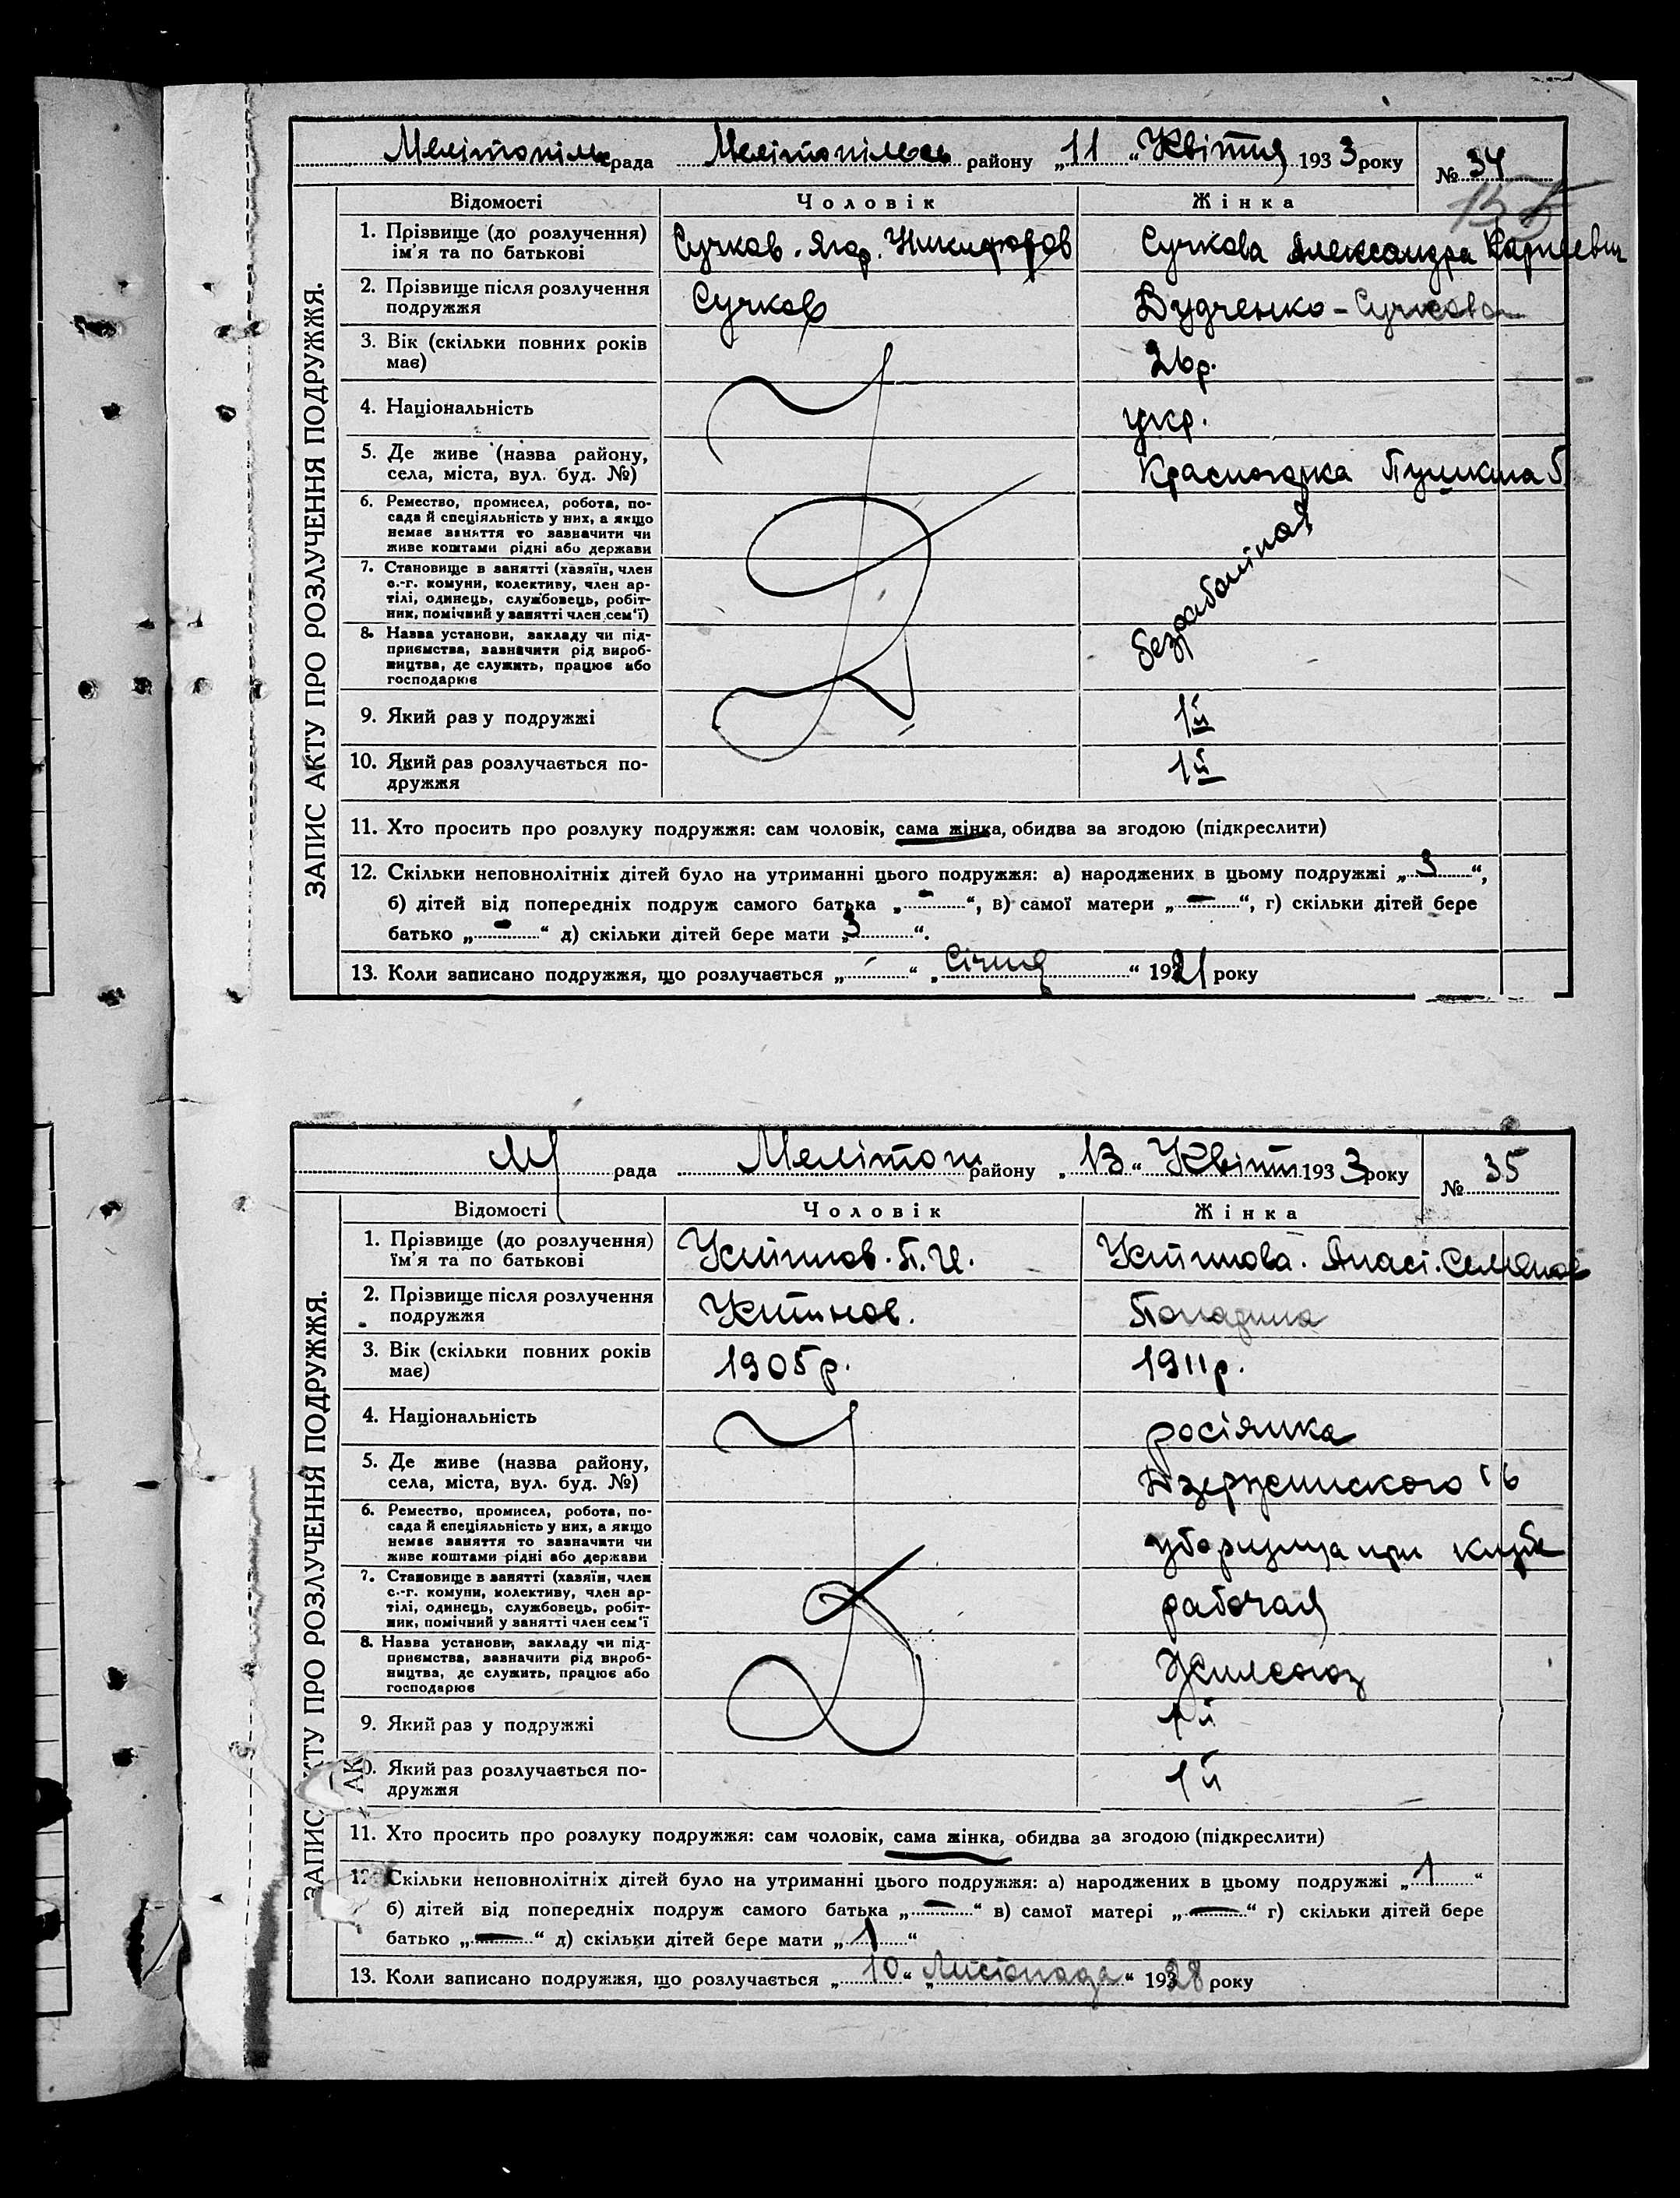 Мелітопільс рада Мелітопільськ району „11" Квітня 1933 року № 34
Відомості Чоловік Жінка
ЗАПИС АКТУ ПРО РОЗЛУЧЕННЯ ПОДРУЖЖЯ.
1. Прізвище (до розлучення) ім'я та по батькові
Сучков. Ягор. Никифоров
Сучкова Александра
2. Прізвище після розлучення подружжя
Сучков
Дудченко-Сучкова
3. Вік (скільки повних років має)
26 р.
4. Національність
укр.
5. Де живе (назва району, села, міста, вул. буд. №)
Красногорка Пушкина 5
6. Ремество, промисел, робота, по-
сада й спеціяльність у них, а якщо
немає заняття то зазначити чи
живе коштами рідні або держави
7. Становище в занятті (хазяїн, член
с.-г. комуни, колективу, член ар-
тілі, одинець, службовець, робіт-
ник, помічний у занятті член сем'ї)
безработная
8. Назва установи, закладу чи під-
приємства, зазначити рід вироб-
ництва, де служить, працює або
господарює
9. Який раз у подружжі
1й
10. Який раз розлучається по-
дружжя
1й
11. Хто просить про розлуку подружжя: сам чоловік, сама жінка, обидва за згодою (підкреслити)
12. Скільки неповнолітніх дітей було на утриманні цього подружжя: а) народжених в цьому подружжі „3",
б) дітей від попередніх подруж самого батька „-", в) самої матери „-", г) скільки дітей бере
батько „-" д) скільки дітей бере мати „3".
13. Коли записано подружжя, що розлучається „-" „Січня" 1921 року
рада Мелітоп району „13" Квітн 1933 року № 35
Відомості Чоловік Жінка
ЗАПИС АКТУ ПРО РОЗЛУЧЕННЯ ПОДРУЖЖЯ.
1. Прізвище (до розлучення)
ім'я та по батькові
Устинов. П. И.
Устинова. Анасі.
2. Прізвище після розлучення
подружжя
Устинов.
3. Вік (скільки повних років
має)
1905 р.
1911 р.
4. Національність
росіянка
5. Де живе (назва району,
села, міста, вул. буд. №)
Дзержинского 16
6. Ремество, промисел, робота, по-
сада й спеціяльність у них, а якщо
немає заняття то зазначити чи
живе коштами рідні або держави
уборщица при клубе
7. Становище в занятті (хазяїн, член
с.-г. комуни, колективу, член ар-
тілі, одинець, службовець, робіт-
ник, помічний у занятті член сем'ї
рабочая
8. Назва установи, закладу чи під-
приємства, зазначити рід вироб-
ництва, де служить, працює або
господарює
Жилсоюз
9. Який раз у подружжі
1й
0. Який раз розлучається по-
дружжя
1й
11. Хто просить про розлуку подружжя: сам чоловік, сама жінка, обидва за згодою (підкреслити)
12. Скільки неповнолітніх дітей було на утриманні цього подружжя: а) народжених в цьому подружжі „1"
б) дітей від попередніх подруж самого батька „-" в) самої матері „-" г) скільки дітей бере
батько „-" д) скільки дітей бере мати „1"
13. Коли записано подружжя, що розлучається „10" „Листопада" 1928 року